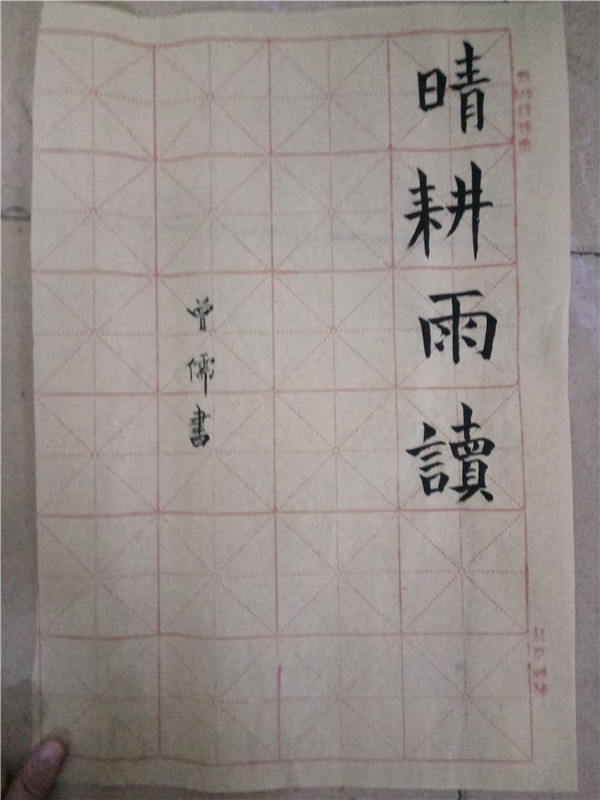 晴耕雨讀
曾儒書